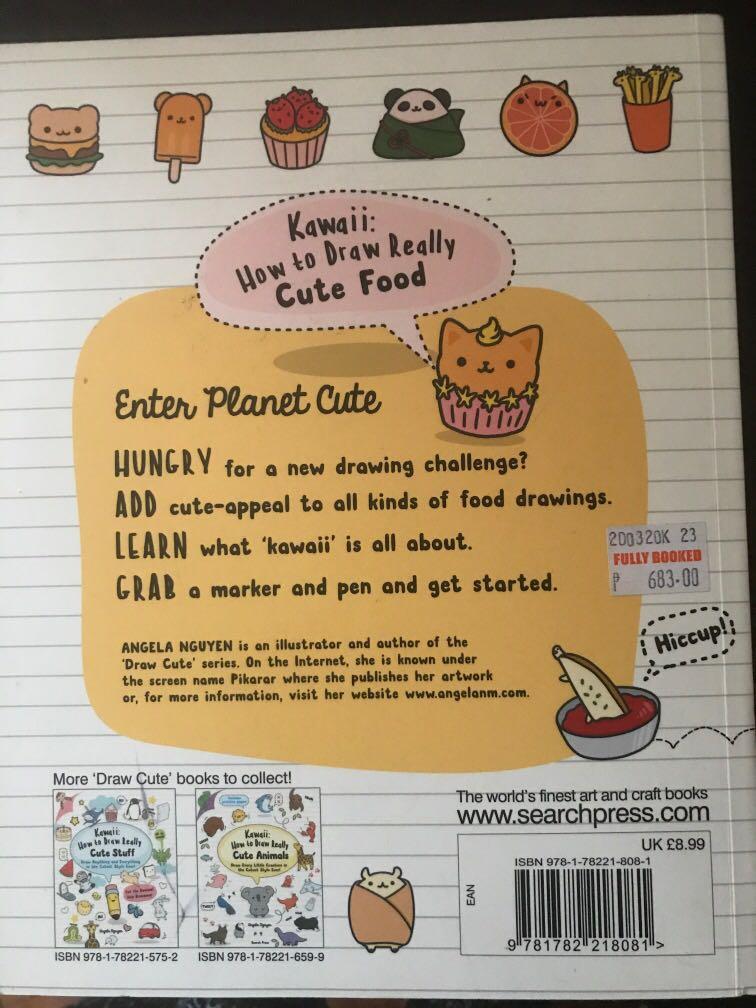 Kawaii:
How to Draw Really
Cute Food
Enter Planet Cute
HUNGRY for a new drawing challenge?
ADD cute-appeal to all kinds of food drawings.
LEARN what 'kawaii' is all about.
GRAB a marker and pen and get started.
200320K 23
FULLY BOOKED
₱ 683.00
Hiccup!
ANGELA NGUYEN is an illustrator and author of the
'Draw Cute' series. On the Internet, she is known under
the screen name Pikarar where she publishes her artwork
or, for more information, visit her website www.angelanm.com.
More 'Draw Cute' books to collect!
Kawaii:
How to Draw Really
Cute Stuff
Kawaii:
How to Draw Really
Cute Animals
Angela Nguyen
Search Press
ISBN 978-1-78221-575-2
ISBN 978-1-78221-659-9
The world's finest art and craft books
www.searchpress.com
UK £8.99
ISBN 978-1-78221-808-1
EAN
9 781782 218081 >